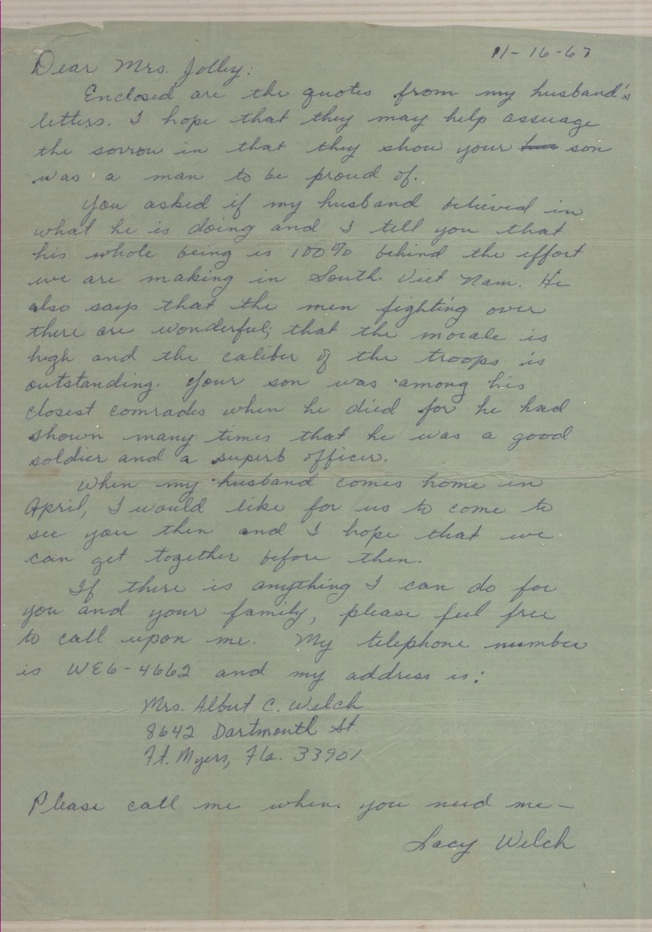 11-16-67
Dear Mrs. Jolley:
Enclosed are the quotes from my husband's
letters. I hope that they may help assuage
the sorrow in that they show your son
was a man to be proud of.
You asked if my husband believed in
what he is doing and I tell you that
his whole being is 100% behind the effort
we are making in South Viet Nam. He
also says that the men fighting over
there are wonderful; that the morale is
high and the caliber of the troops is
outstanding. Your son was among his
closest comrades when he died for he had
shown many times that he was a good
soldier and a superb officer.
When my husband comes home in
April, I would like for us to come to
see you then and I hope that we
can get together before then.
If there is anything I can do for
you and your family, please feel free
to call upon me. My telephone number
is WE6-4662 and my address is:
Mrs. Albert C. Welch
8642 Dartmouth St.
Ft. Myers, Fla. 33901
Please call me when you need me-
Lacy Welch